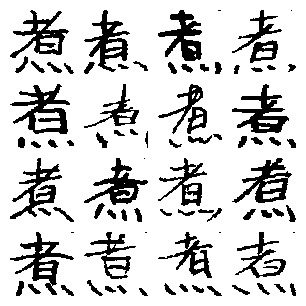 煮煮煮煮
煮煮煮煮
煮煮煮煮
煮煮煮煮